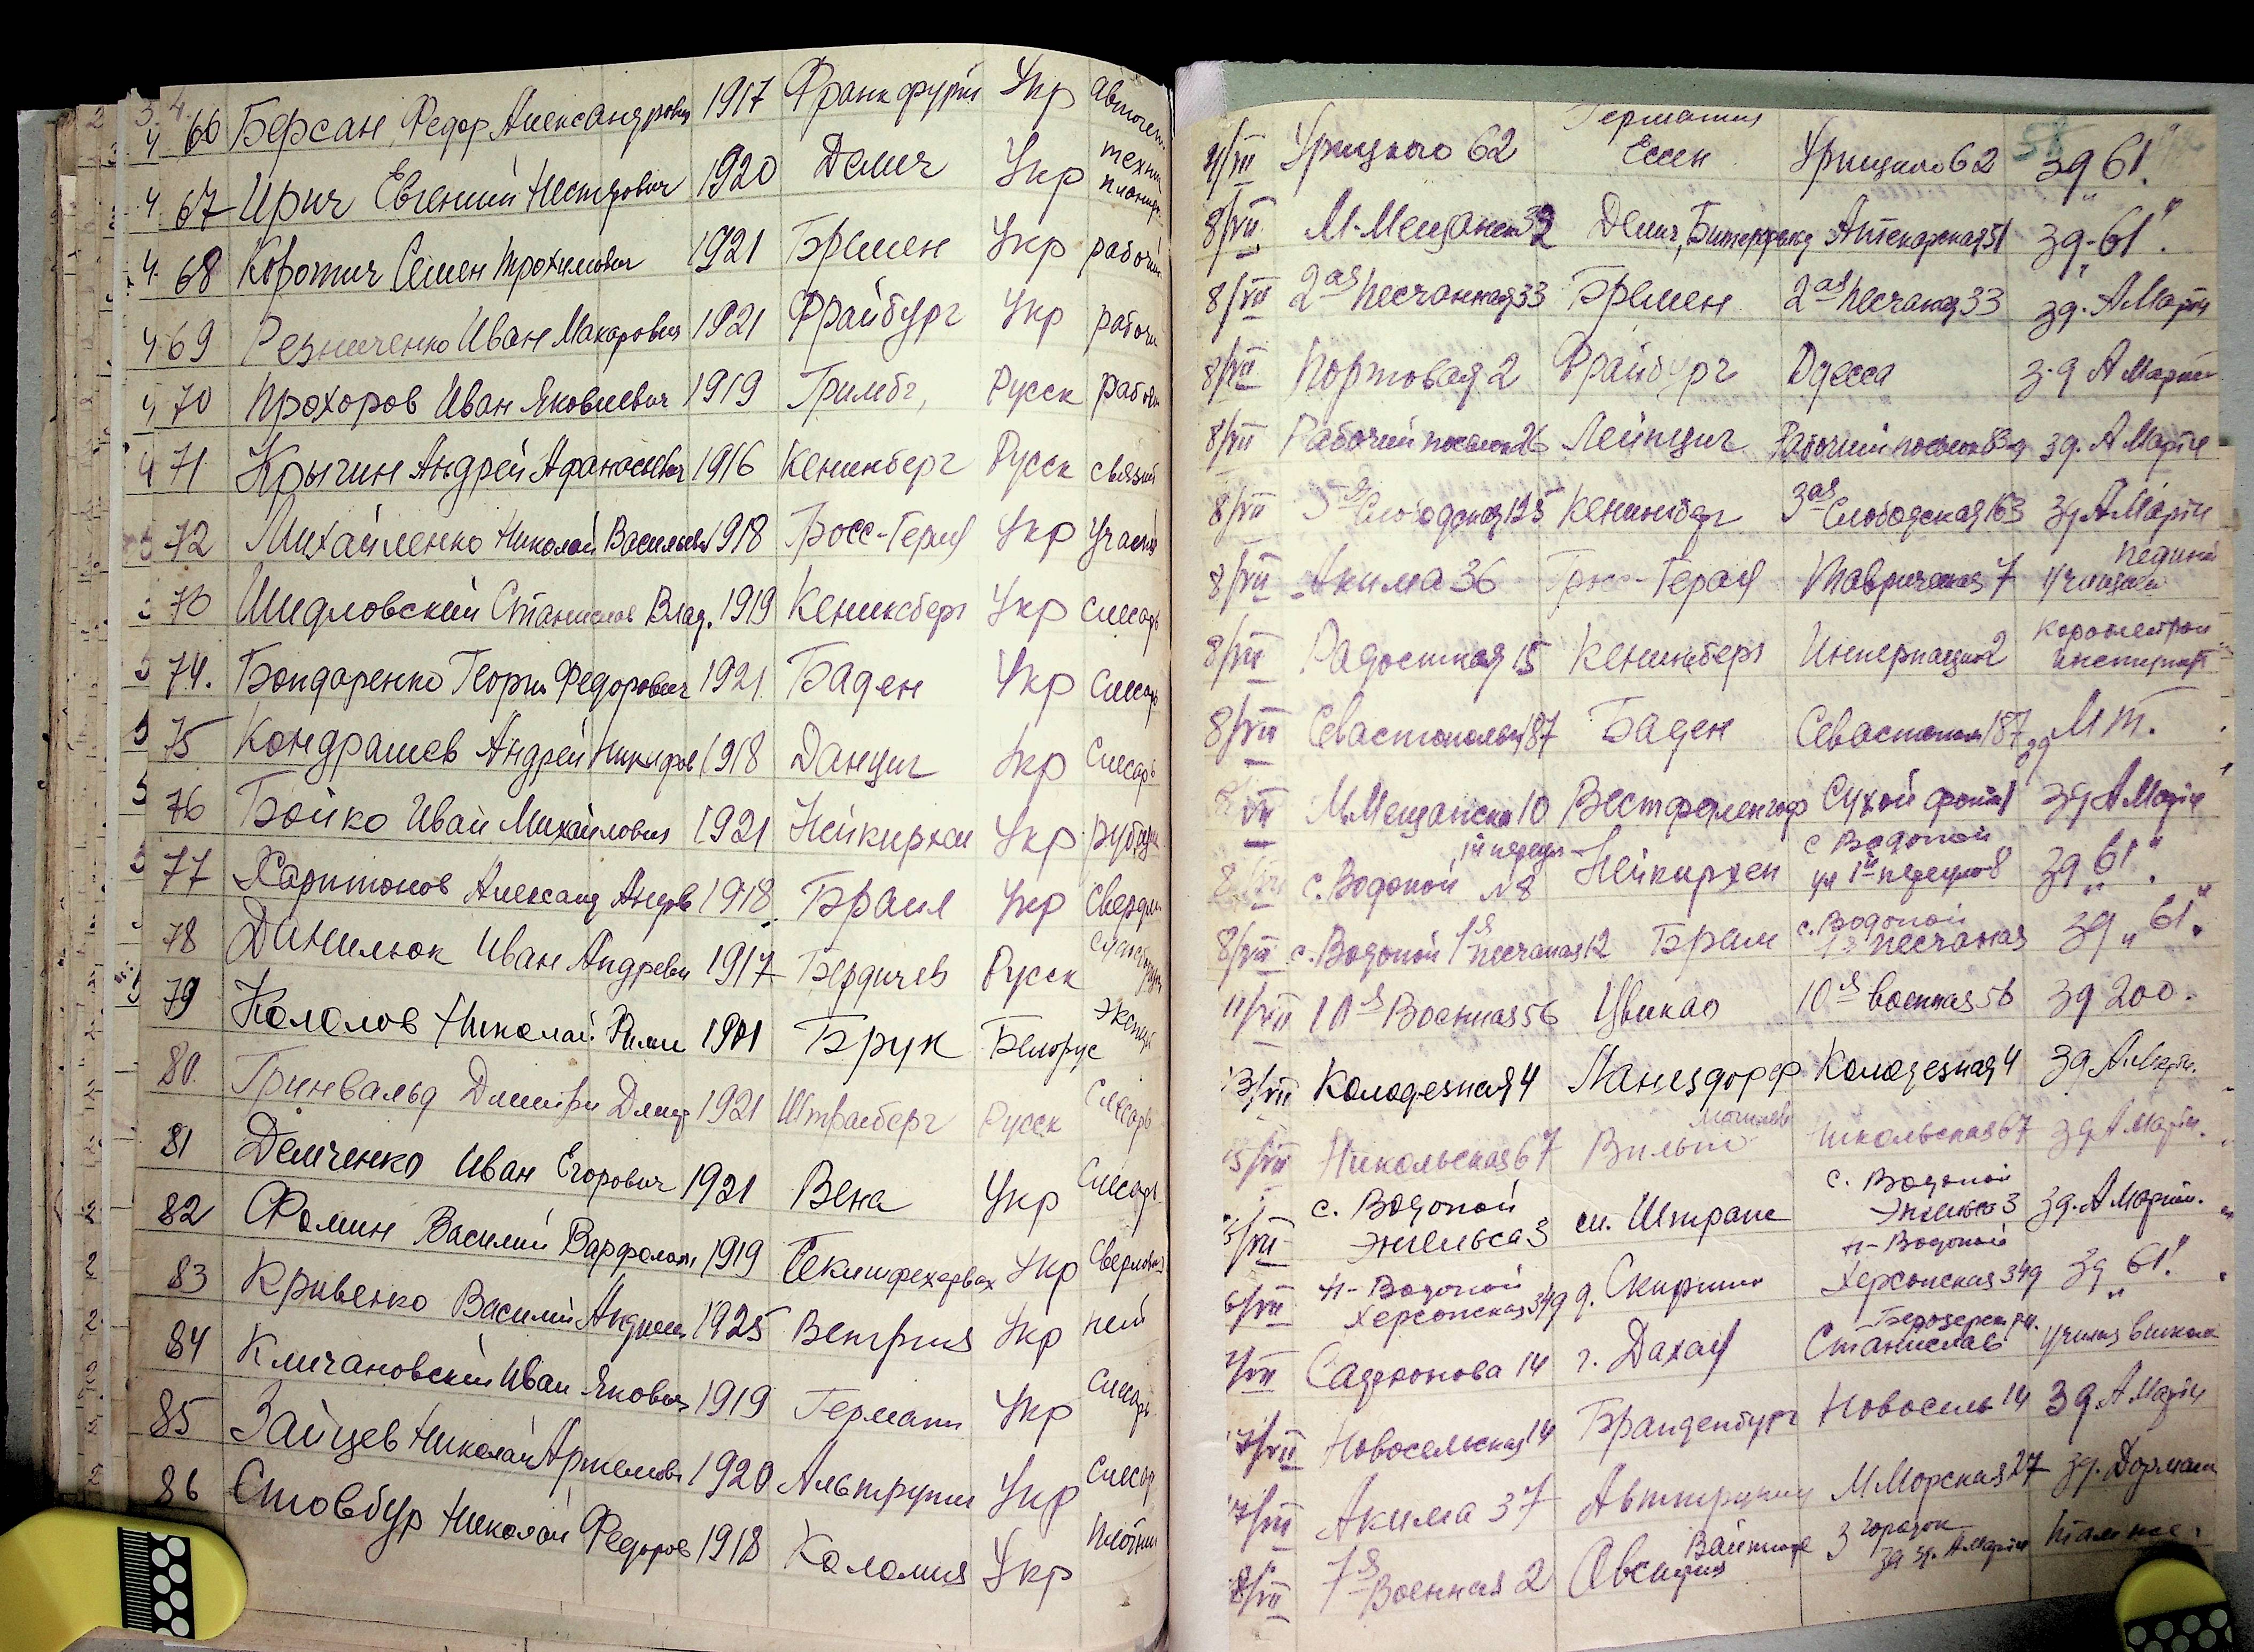 66 Берсан, Федор Александрович 1917 Франкфурт Укр
67 Ирич Евгений Нестерович 1920 Демич Укр техник
68 Коротич Семен Трохимович 1921 Бремен Укр рабочий
69 Резниченко Иван Макарович 1921 Фрайбург Укр рабочи
70 Прохоров Иван Яковлевич 1919 Гримбг, Русск рабоч
71 Крыгин Андрей Афанасьевич 1916 Кенинберг Русск
72 Михайленко Николай Васильевич 1918 Гросс-Герау Укр
73 Шидловский Станислав Влад. 1919 Кениксберг Укр Слесарь
74. Бондаренко Георги Федорович 1921 Баден Укр Слесарь
75 Кондрашев Андрей Никифор 1918 Данциг Укр Слесарь
76 Бойко Иван Михайлович 1921 Нейкирхен Укр
77 Харитонов Александ Андр 1918 Браил Укр
78 Данилюк Иван Андреевич 1917 Бердичев Русск
79 Кололов Николай Брук Белорус
80. Гринвальд Дмитри Дмитр 1921 Штрасберг Русск Слесарь
81 Демченко Иван Егорович 1921 Вена Укр Слесарь
82 Фомин Василий Варфолом 1919 Секишфехервах Укр
83 Кривенко Василий Андреев 1925 Венгрия Укр нет
84 Кличановский Иван Яковлев 1919 Германи Укр Слесарь
85 Зайцев Николай Артемов 1920 Альтрупи Укр Слесар
86 Стовбур Николай Федоров 1918 Коломия Укр Плотник
Германия
4/VII Урицкого 62 Есен Урицкого 62 зд „61"
8/VII М-Мещанск 32 Демич, Аптекарская 51 зд. „61".
8/VII 2ая Песчанная 33 Бремен 2ая Песчаная 33 зд. А Марти
8/VII Портовая 2 Фрайбург Одесса з-д А Марти
8/VII Рабочий поселок 26 Лейпциг Рабочий поселок зд. А Марти
8/VII Слободская 125 Кенинсберг 3ая Слободская 163 зд А Марти
8/VII Акима 36 Грос-Герау Тавричемая 7
8/VII Радостная 15 Кенинсберг Интернацион 2 Кораблестрои институт
8/VII Севастопольск 187 Баден Севастопол 187 зд М Т.
8/VII М.Мещанска 10 Вестфаленгоф Сухой фонтан 1 зд А Марти
8/VII с. Водопой 1й переул N8 Нейкирхен с Водопой ул 1й переулок 8 зд „61".
8/VII с. Водопой 1я Песчаная 12 Браил с. Водопой 1я Песчаная зд „61".
11/VII 10я Военная 56 Цвикао 10я военная 56 зд 200.
13/VII Колодезная 4 Манездорф Колодезная 4 зд А.Марти.
15/VII Никольская 67 Никольская 67 зд А Марти.
с. Водопой Энгельса 3 Штрапе с. Водопой Энгельса 3 зд. А Марти.
Н-Водопой Херсонская 349 д. Н-Водопой Херсонская 349 зд „61".
Сафронова 14 г. Дахау Станислав
17/VII Новосельская 14 Бранденбург Новосель 14 зд А Марти
17/VII Акима 37 М Морская 27 зд.
18/VII 7я Военная 2 3 городок